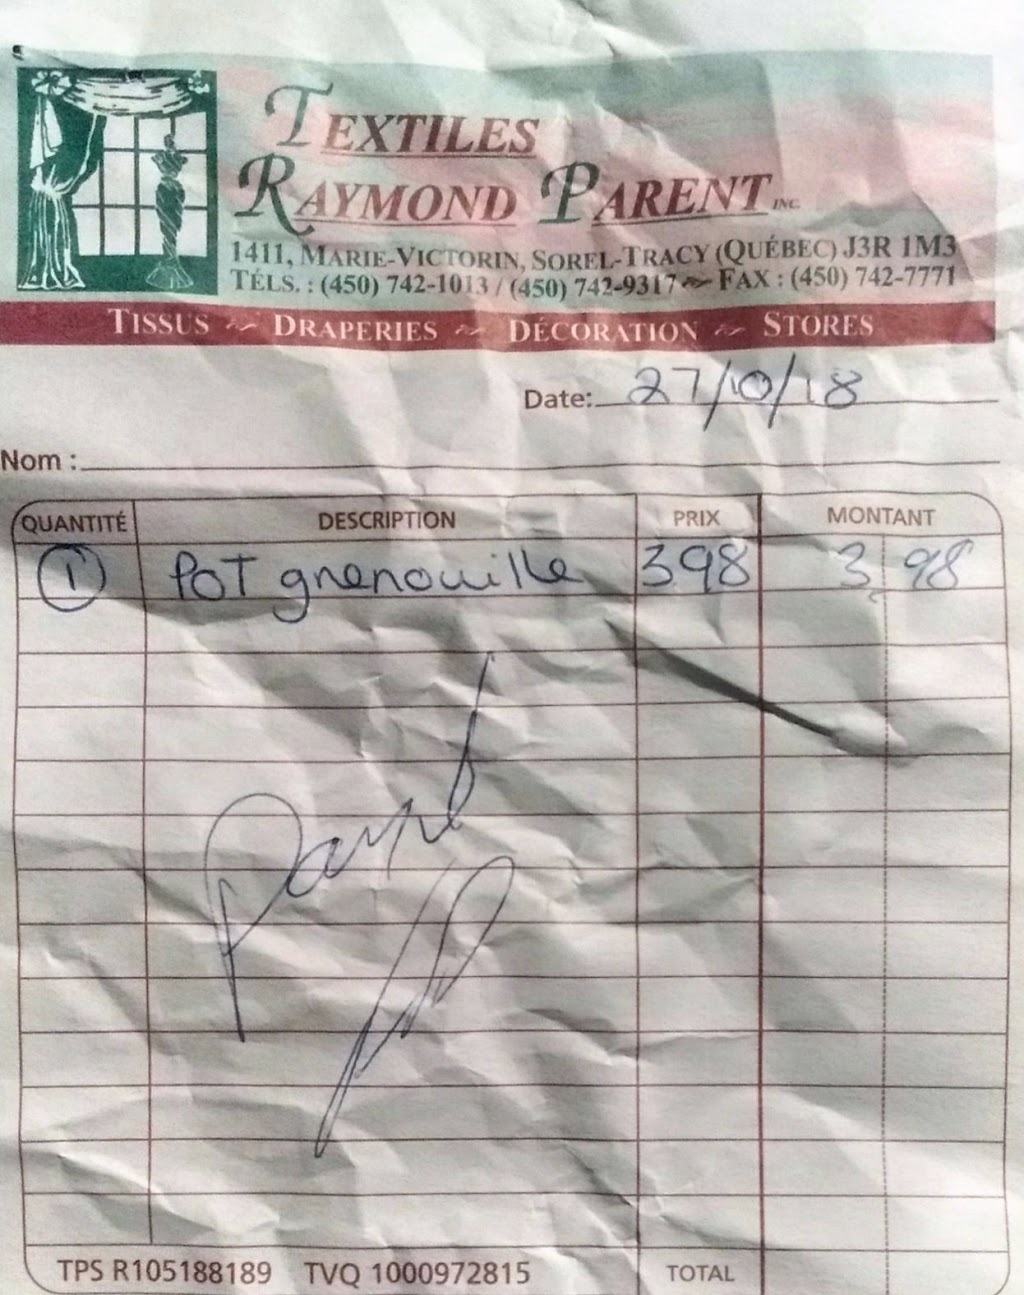 TEXTILES
RAYMOND PARENT INC.
1411, MARIE-VICTORIN, SOREL-TRACY (QUÉBEC) J3R 1M3
TÉLS. : (450) 742-1013 / (450) 742-9317 ~ FAX : (450) 742-7771
TISSUS ~ DRAPERIES ~ DÉCORATION ~ STORES
Date: 27/10/18
Nom :
QUANTITÉ DESCRIPTION PRIX MONTANT
1 Pot grenouille 398 3,98
TPS R105188189 TVQ 1000972815 TOTAL